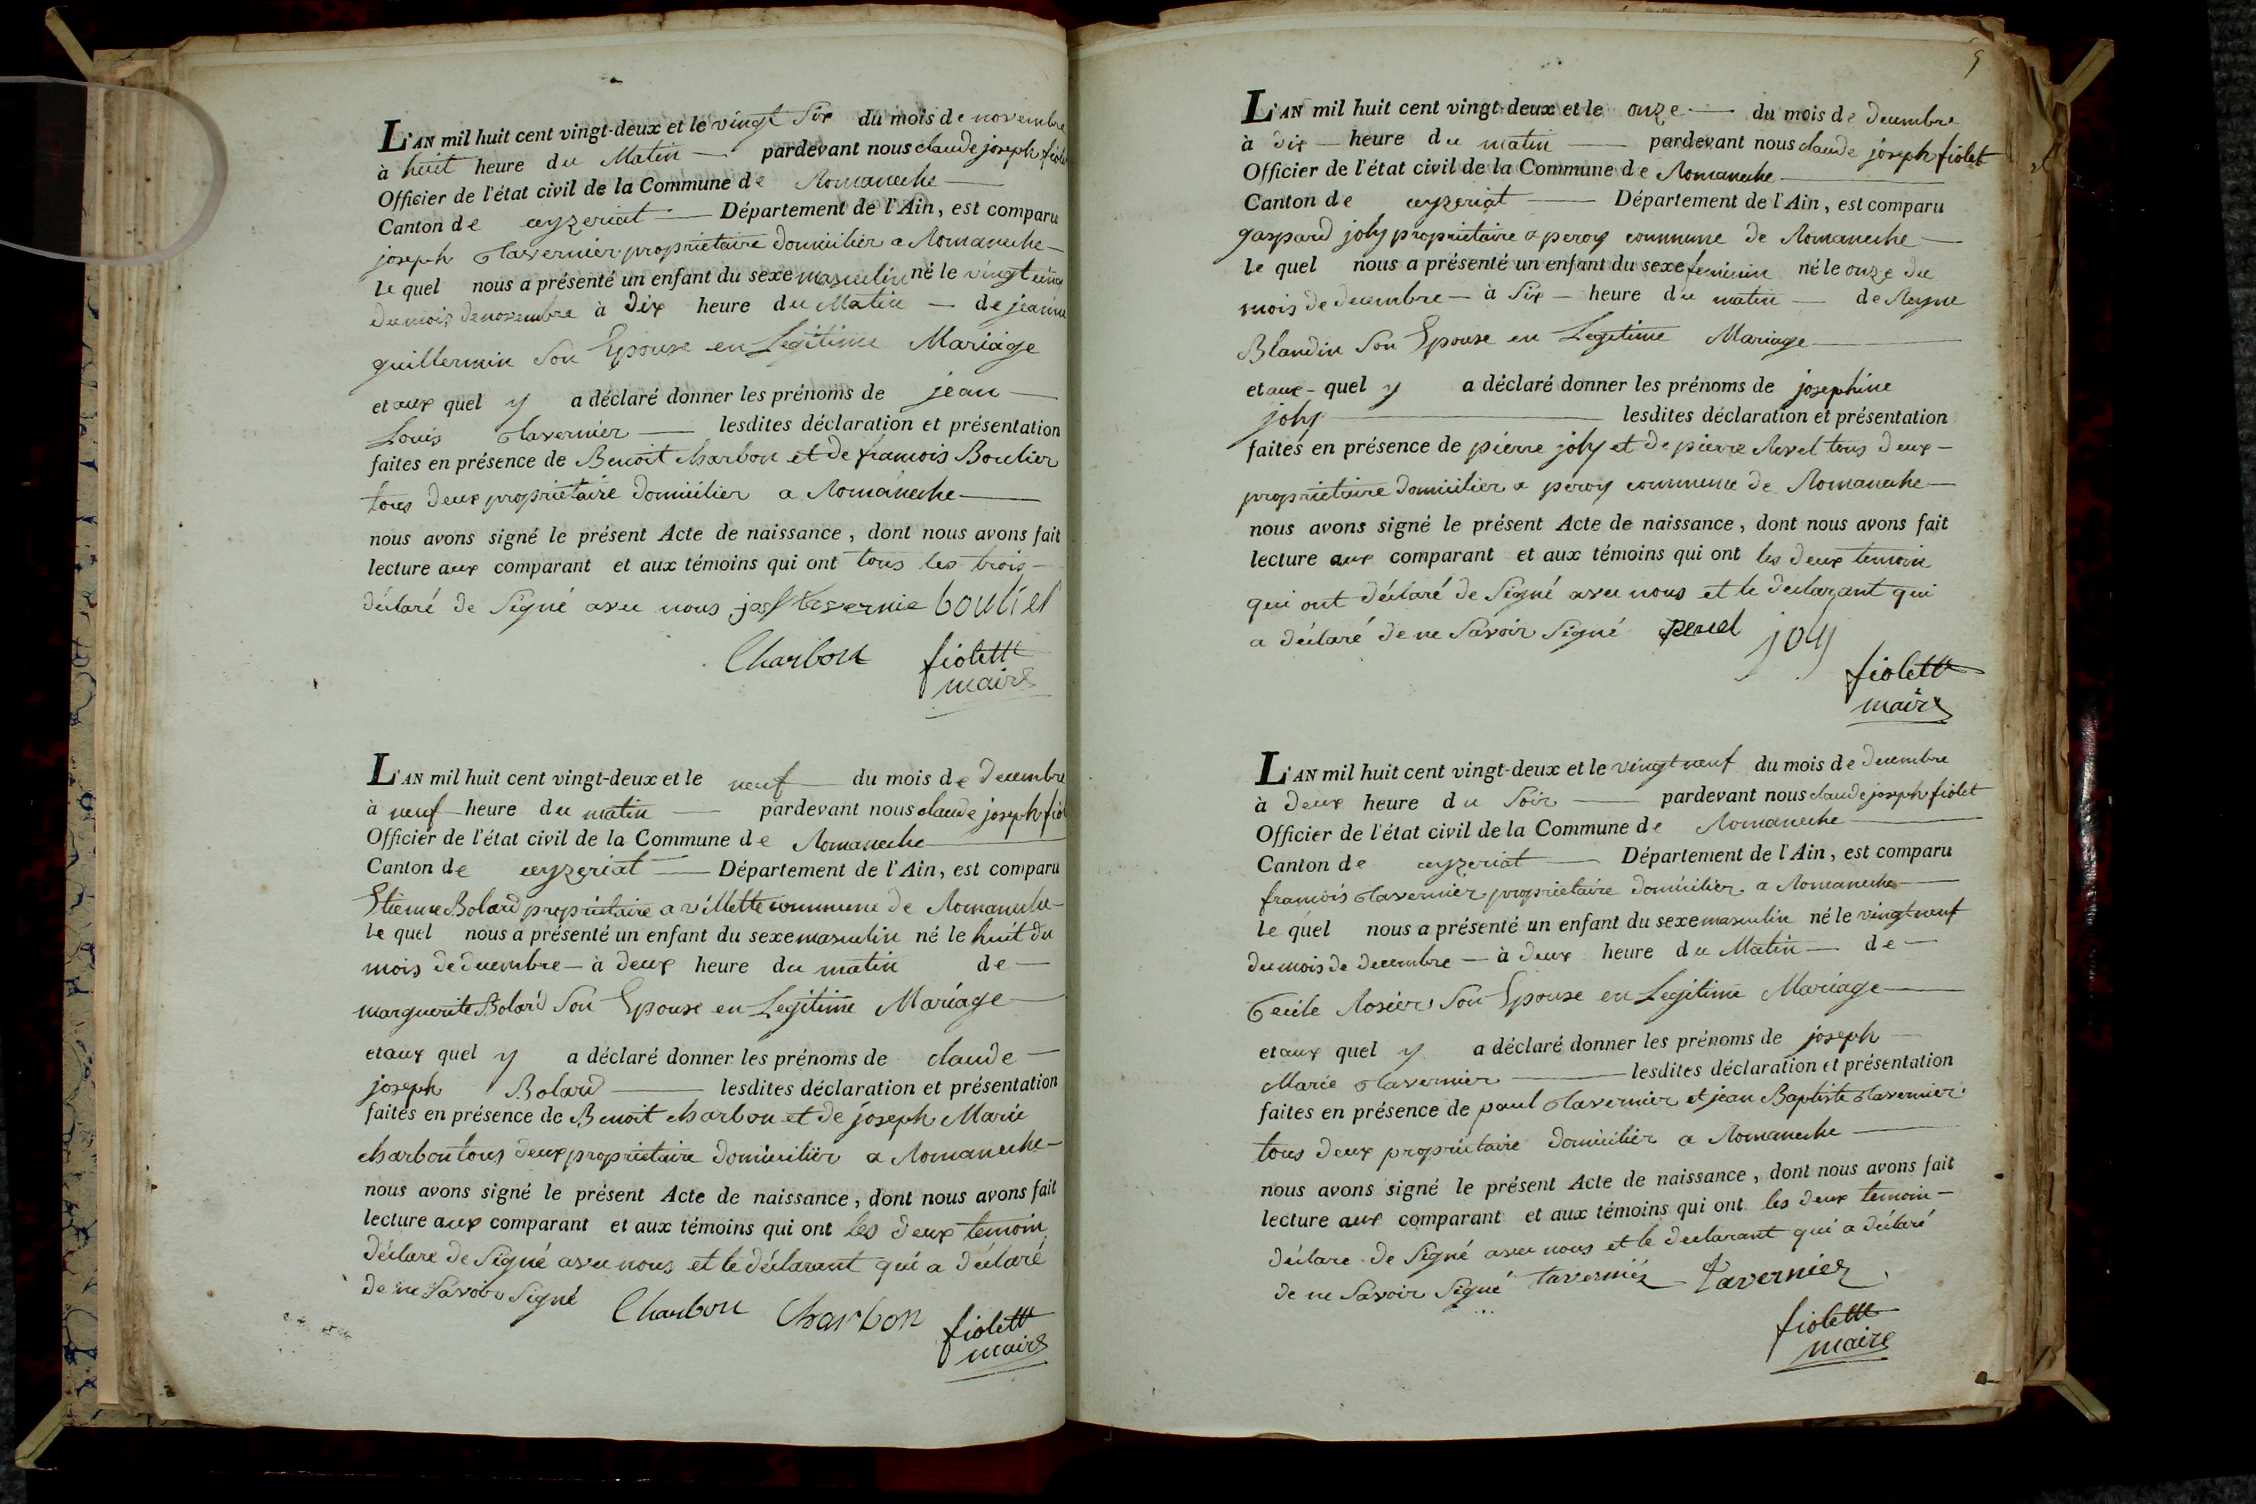 L'AN mil huit cent vingt-deux et le vingt six du mois de novembre
à huit heure du Matin — pardevant nous claude joseph fiolet
Officier de l'état civil de la Commune de Romaneche —
Canton de ceyzeriat — Département de l'Ain, est comparu
joseph tavernier proprietaire domicilier a Romaneche —
le quel nous a présenté un enfant du sexe masculin né le vingt
du mois de novembre à dix heure du Matin — de jeanne
guillermin son Epouse en Legitime Mariage
et aux quel y a déclaré donner les prénoms de jean —
Louis tavernier — lesdites déclaration et présentation
faites en présence de Benoit charbon et de francois Boulier
tous deux proprietaire domicilier a Romaneche —
nous avons signé le présent Acte de naissance, dont nous avons fait
lecture aux comparant et aux témoins qui ont tous les trois —
déclaré de signé avec nous josph tavernie boulier
Charbon fiolett
maire
L'AN mil huit cent vingt-deux et le neuf du mois de decembre
à neuf heure du matin — pardevant nous claude joseph fiol
Officier de l'état civil de la Commune de Romaneche —
Canton de ceyzeriat — Département de l'Ain, est comparu
Etienne Bolard proprietaire a villette commune de Romaneche —
le quel nous a présenté un enfant du sexe masculin né le huit du
mois de decembre — à deux heure du matin de —
marguerite Bolard son Epouse en Legitime Mariage —
et aux quel y a déclaré donner les prénoms de claude —
joseph Bolard — lesdites déclaration et présentation
faites en présence de Benoit charbon et de joseph Marie
charbon tous deux proprietaire domicilier a Romaneche —
nous avons signé le présent Acte de naissance, dont nous avons fait
lecture aux comparant et aux témoins qui ont les deux temoin
déclare de signé avec nous et le déclarant qui a déclaré
de ne savoir signé Charbon Charbon fiolett
maire
5
L'AN mil huit cent vingt-deux et le onze — du mois de decembre
à dix — heure du matin — pardevant nous claude joseph fiolet
Officier de l'état civil de la Commune de Romaneche —
Canton de ceyzeriat — Département de l'Ain, est comparu
gaspard joly proprietaire a peroy commune de Romaneche —
le quel nous a présenté un enfant du sexe feminin né le onze du
mois de decembre — à six — heure du matin — de Reyne
Blandin son Epouse en Legitime Mariage —
et aux - quel y a déclaré donner les prénoms de josephine
joly — lesdites déclaration et présentation
faites en présence de pierre joly et de pierre Revel tous deux —
proprietaire domicilier a peroy commune de Romaneche —
nous avons signé le présent Acte de naissance, dont nous avons fait
lecture aux comparant et aux témoins qui ont les deux temoin
qui ont déclaré de signé avec nous et le declarant qui
a déclaré de ne savoir signé joly
fiolett
maire
L'AN mil huit cent vingt-deux et le vingt neuf du mois de decembre
à deux heure du soir — pardevant nous claude joseph fiolet
Officier de l'état civil de la Commune de Romaneche —
Canton de ceyzeriat — Département de l'Ain, est comparu
francois tavernier proprietaire domicilier a Romaneche —
le quel nous a présenté un enfant du sexe masculin né le vingt neuf
du mois de decembre — à deux heure du Matin — de —
Cecile Rosier son Epouse en Legitime Mariage —
et aux quel y a déclaré donner les prénoms de joseph —
Marie tavernier — lesdites déclaration et présentation
faites en présence de paul tavernier et jean Baptiste tavernier
tous deux proprietaire domicilier a Romaneche —
nous avons signé le présent Acte de naissance, dont nous avons fait
lecture aux comparant et aux témoins qui ont les deux temoin —
déclare de signé avec nous et le declarant qui a déclaré
de ne savoir signé tavernier Tavernier
fiolett
maire